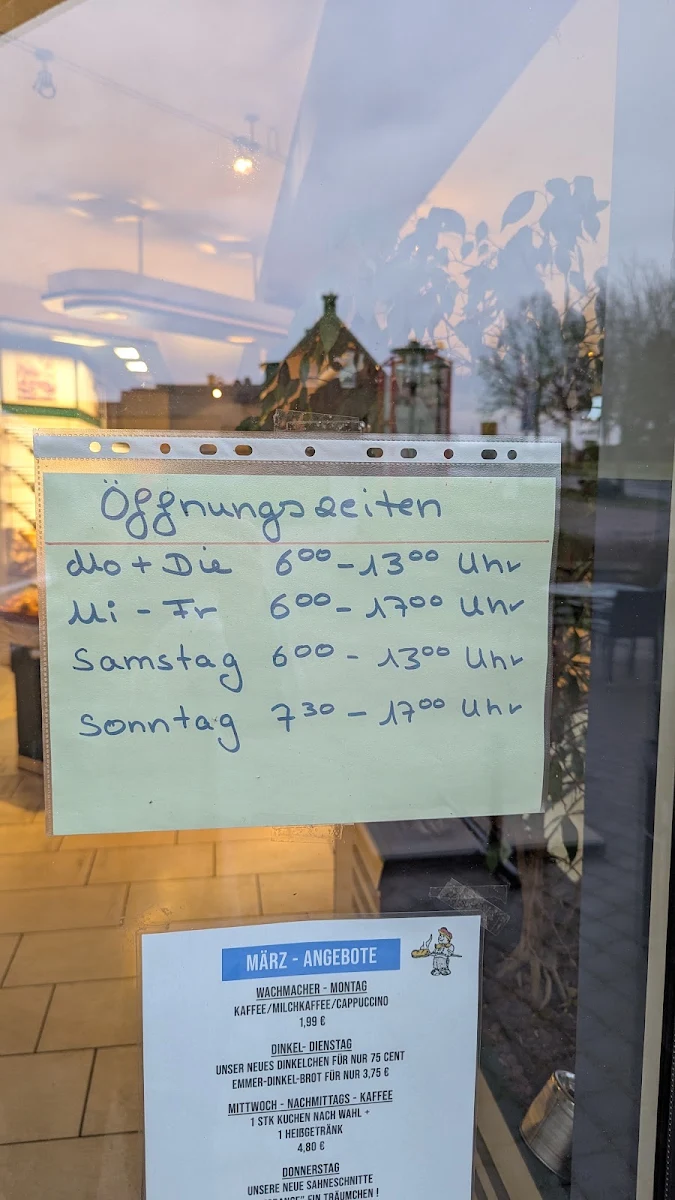 Öffnungszeiten
Mo + Die 6⁰⁰ - 13⁰⁰ Uhr
Mi - Fr 6⁰⁰ - 17⁰⁰ Uhr
Samstag 6⁰⁰ - 13⁰⁰ Uhr
Sonntag 7³⁰ - 17⁰⁰ Uhr
MÄRZ - ANGEBOTE
WACHMACHER - MONTAG
KAFFEE/MILCHKAFFEE/CAPPUCCINO
1,99 €
DINKEL- DIENSTAG
UNSER NEUES DINKELCHEN FÜR NUR 75 CENT
EMMER-DINKEL-BROT FÜR NUR 3,75 €
MITTWOCH - NACHMITTAGS - KAFFEE
1 STK KUCHEN NACH WAHL +
1 HEIßGETRÄNK
4,80 €
DONNERSTAG
UNSERE NEUE SAHNESCHNITTE
EIN TRÄUMCHEN !